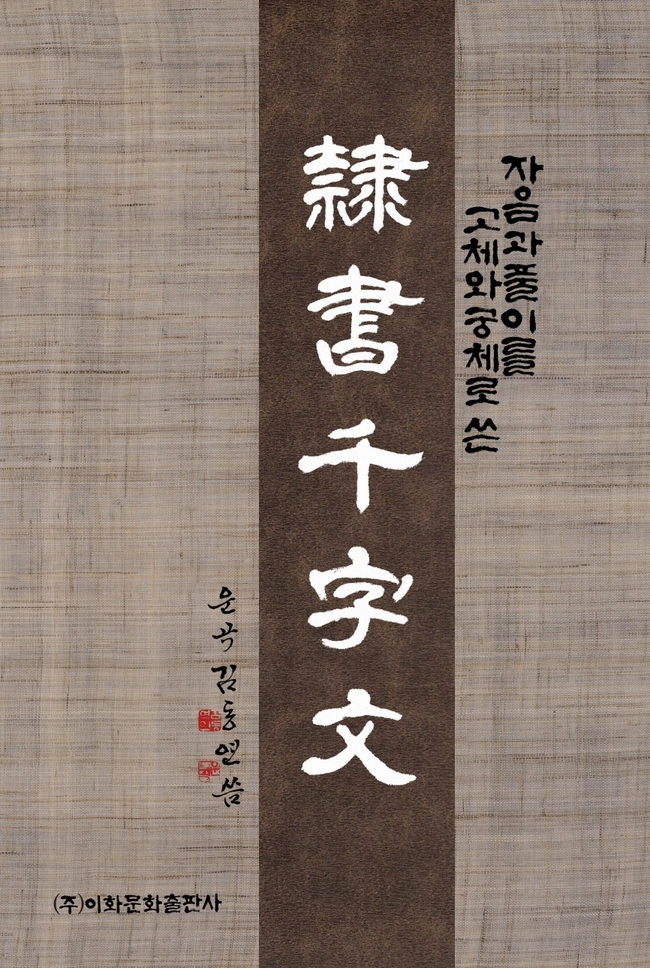 자음과 풀이를
고체와 궁체로 쓴
隸書千字文
운곡 김동연 씀
(주)이화문화출판사